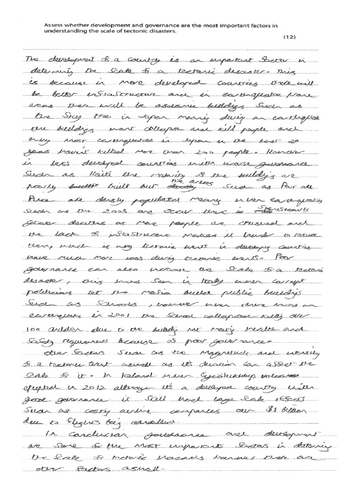 Assess whether development and governance are the most important factors in
understanding the scale of tectonic disasters.
(12)
The development of a country is an important factor in
determining the scale to a tectonic disaster. This
is because in more developed countries there will
be better infrastructure and in earthquake prone
areas there will be aseismic buildings such as
the Sky tree in Japan meaning during an earthquake
the buildings wont collapse and kill people and
why most earthquakes in Japan in the last 20
years havn't killed more than 200 people. However
in less developed countries with worse governance
such as Haiti the majority of the buildings are
poorly built but the areas such as Port au
Prince are densely populated meaning when earthquakes
such as the 2005 are occur there is significantly
greater deaths as more people are exposed and
the lack of infrastructure makes it harder to rescue
them, which is why tectonic events in developing countries
have much more loss during tectonic events. Poor
governance can also increase the scale to a tectonic
disaster, this was seen in Italy when corrupt
politicians let the mafia build public buildings
such as schools, however when there was an
earthquake in 2001 the school collapsed killing over
100 children due to the building not meeting health and
safety requirements because of poor governance.
Other factors such as the magnitude and intensity
to a tectonic event aswell as its duration can affect the
scale to it. In Iceland when Eyjafjallajokull
erupted in 2012 although its a developed country with
good governance it still had large scale effects
such as costing airline companies over $1 billion
due to flights being cancelled.
In conclusion governance and development
are some of the most important factors in determining
the scale to tectonic hazards however there are
other factors aswell